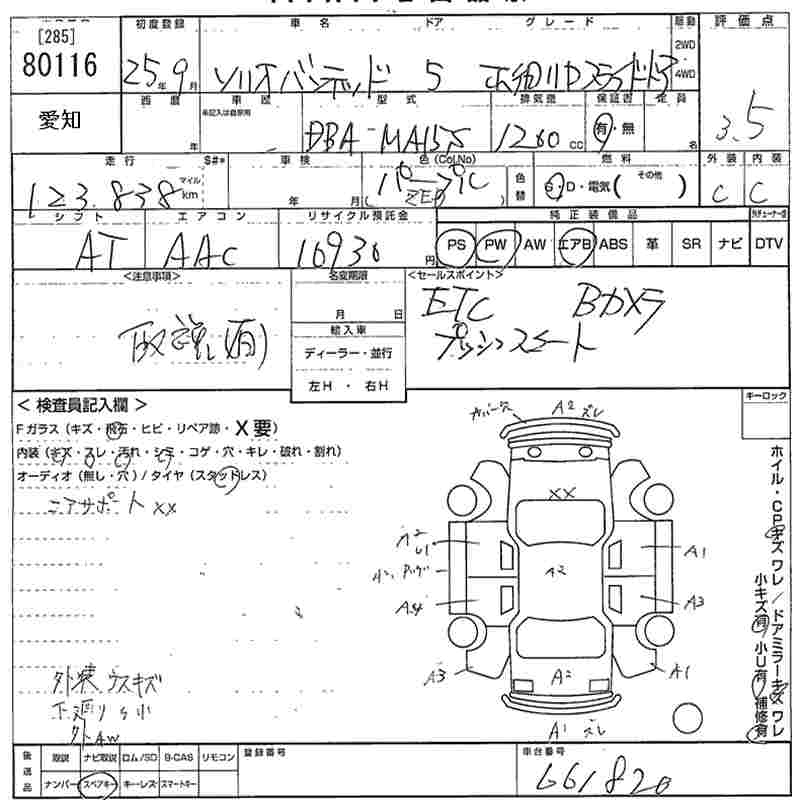 [285]
80116
愛知
初度登録 車名 ドア グレード 駆動 評価点
25年9月 ソリオバンディット 5 2WD 4WD 3.5
西暦 車歴 型式 排気量 保証書 定員
年 未記入は自家用 DBA-MA15S 1200 cc 有・無 名
走行 S#* 車検 色(Col,No) 燃料 外装 内装
123,838 マイル km 年 月 ( パープル ZE ) 色替 G・D・電気( その他 ) C C
シフト エアコン リサイクル預託金 純正装備品
AT AAC 10930 円 PS PW AW エアB ABS 革 SR ナビ DTV
<注意事項> 名変期限 <セールスポイント>
取説(有) 月 日 ETC Bカメラ
輸入車 プッシュスタート
ディーラー・並行
左H・右H
<検査員記入欄> キーロック
Fガラス(キズ・飛石・ヒビ・リペア跡・X要)
内装(キズ・スレ・汚れ・シミ・コゲ・穴・キレ・破れ・割れ)
オーディオ(無し・穴)/タイヤ(スタッドレス)
コアサポート XX
カバー穴 A2 ズレ
XX
A2 U1 A1
A2
A3
A3 A2 A1
A1 ズレ
外装 ウスキズ
下廻り サ小
外AW
ホイル・CPキズ ワレ/ドアミラーキズ ワレ
小キズ有 小U有 補修有
後送品 取説 ナビ取説 ロム/SD B-CAS リモコン 登録番号 車台番号
ナンバー スペアキー キーレス スマートキー 661820